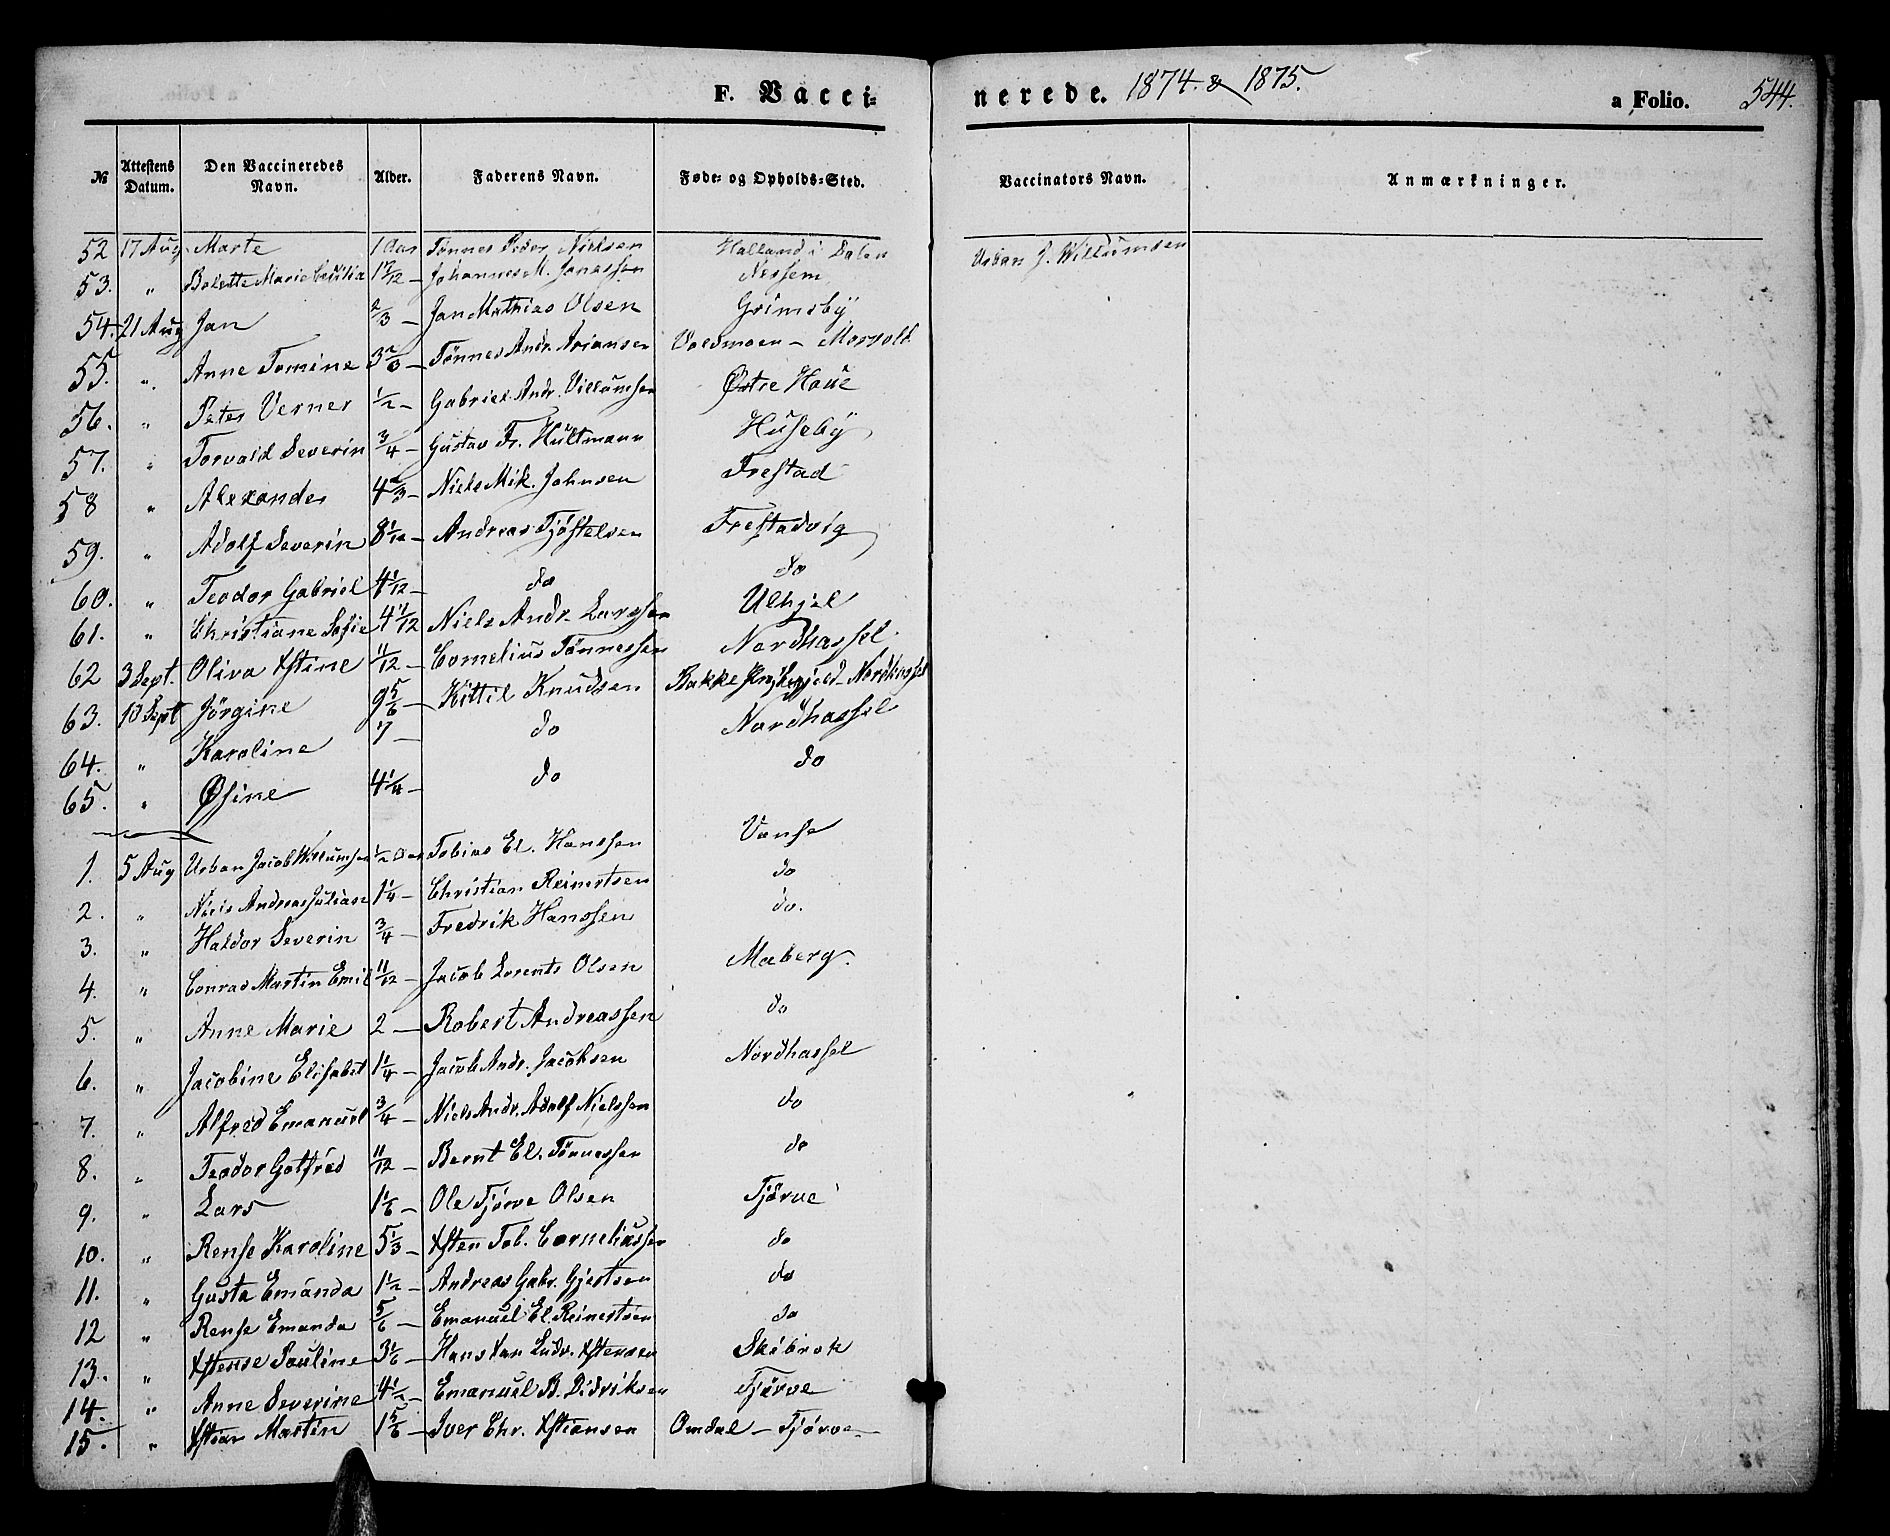 F. Vacci-
nerede. 1874. & 1875.
a Folio. 544.
№ Attestens Datum. Den Vaccineredes Navn. Alder. Faderens Navn. Føde- og Opholds-Sted. Vaccinators Navn. Anmærkninger.
52 17 Aug Marte 1 Aar Tønnes Peder Nielsen Halland i Dalen Urban J. Willumsen
53. " Bolette Marie Cecilia Johannes M. Jonassen Nessem
54. 21 Aug Jan 2/3 – Jan Mathias Olsen Grimsby
55. " Anne Tomine 3 2/3 – Tønnes Andr. Ariansen
56. " Peter Verner 1/2 – Gabriel Andr. Villumsen Østre Haue
57. " Torvald Severin 3/4 – Gustav Fr. Hultmann Huseby
58 " Alexander 4 2/3 – Niels Mik. Johnsen Frestad
59. " Adolf Severin 8 1/12 – Andreas Tjøstelsen Frestadvig
60. " Teodor Gabriel 4 1/12 – do do
61. " Christiane Sofie 4 11/12 Niels Andr. Larssen Ulhjel
62 3 Sept. Oliva Xstine 11/12 – Cornelius Tønnessen Nordhassel
63. 10 Sept Jörgine 9 5/6 – Kittil Knudsen Bakke – Nordhassel
64. " Karoline 7 – do Nordhassel
65. " Øsine 4 1/4 – do do
1. 5 Aug Urban Jacob Willumsen 1/2 Aar Tobias El. Hanssen Vanse
2. " Niels Andreas Julian 1 1/4 – Christian Reinertsen do
3. " Haldor Severin 3/4 – Fredrik Hanssen do.
4. " Conrad Martin Emil 11/12 – Jacob Lorents Olsen Maberg.
5. " Anne Marie 2 – Robert Andreassen do
6. " Jacobine Elisabet 1 1/4 – Jacob Andr. Jacobsen Nordhassel
7. " Alfred Emanuel 3/4 – Niels Andr. Adolf Nielssen do
8. " Teodor Gotfred 11/12 – Bernt El. Tønnessen do
9. " Lars 1 1/6 – Ole Tjørve Olsen Tjørve
10. " Rense Karoline 5 1/3 – Xsten Tob. Corneliussen do
11. " Gusta Emanda 1 1/2 – Andreas Gabr. Gjertsen do
12 " Rense Emanda 5/6 – Emanuel El. Reinertsen do
13. " Xstense Pauline 3 1/6 – Hans Ludv. Xstensen Skibrok
14. " Anne Severine 4 1/2 – Emanuel B. Didriksen Tjørve
15. " Xstian Martin 1 5/6 – Iver Chr. Xstiansen Omdal – Tjørve